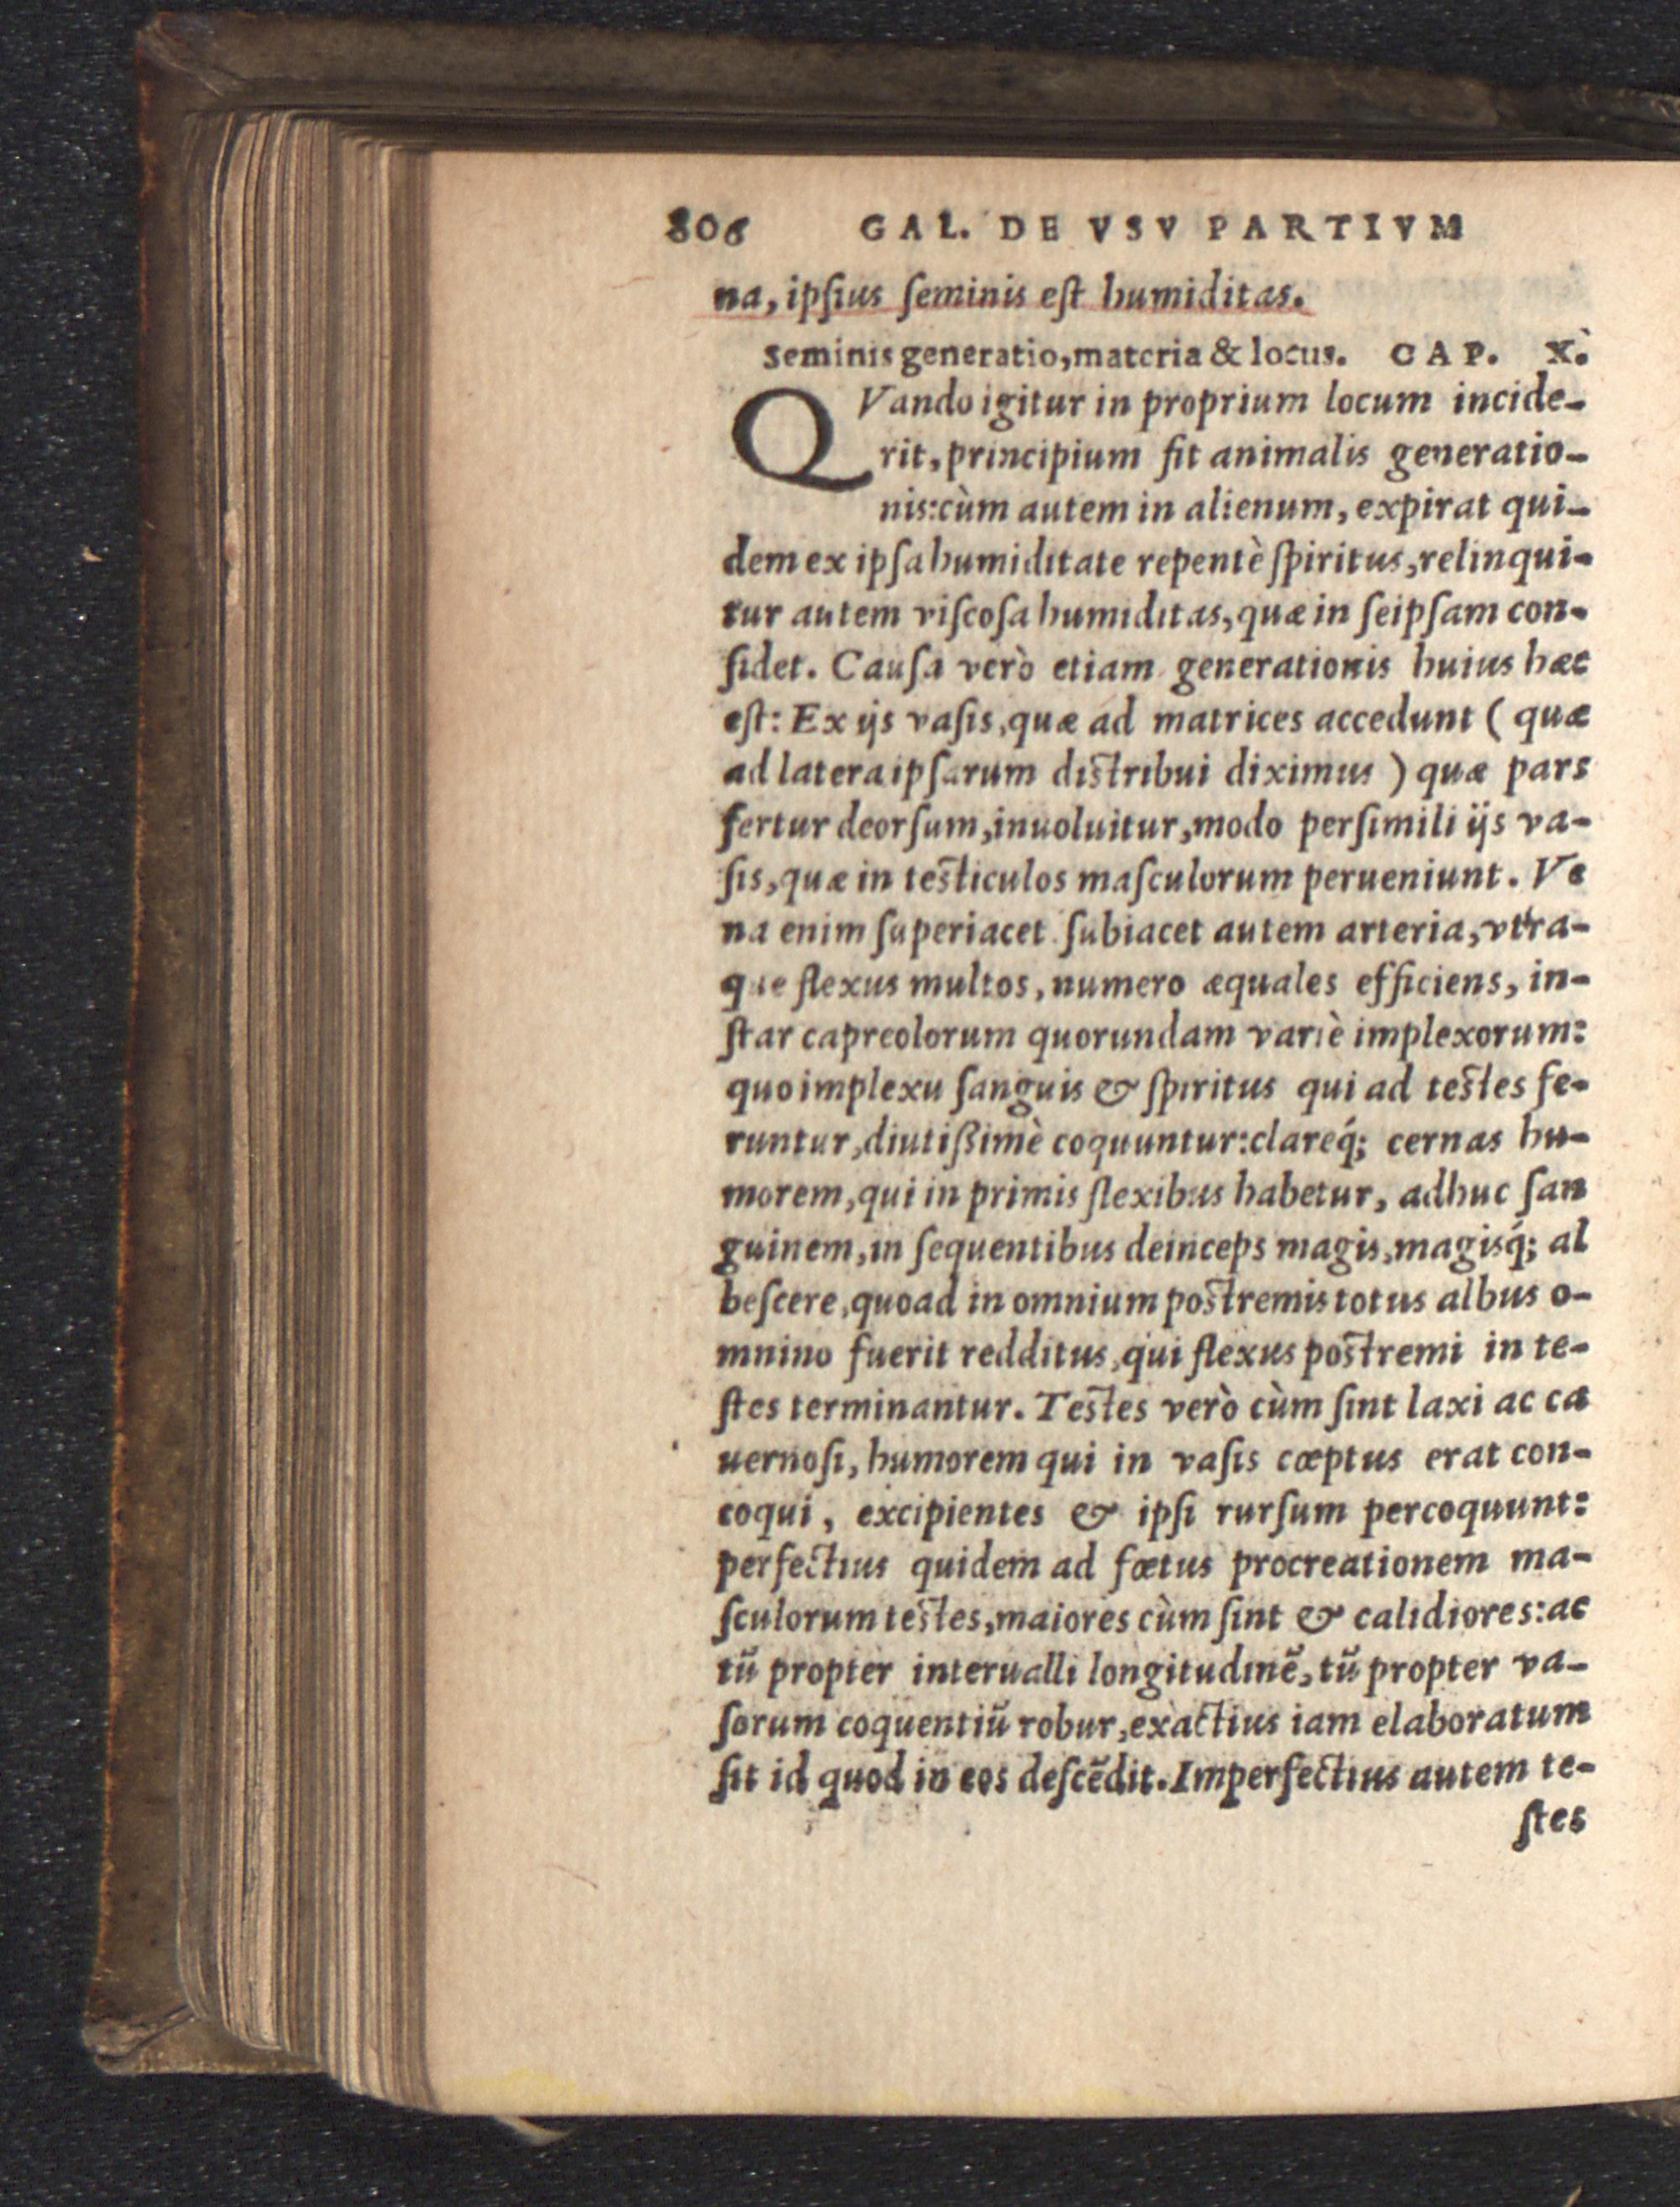 806 GAL. DE VSV PARTIVM
na, ipſius ſeminis eſt humiditas.
Seminis generatio, materia & locus. CAP. X.
QVando igitur in proprium locum incide-
rit, principium fit animalis generatio-
nis: cùm autem in alienum, expirat qui-
dem ex ipſa humiditate repentè ſpiritus, relinqui-
tur autem viſcoſa humiditas, quæ in ſeipſam con-
ſidet. Cauſa verò etiam generationis huius hæc
eſt: Ex ijs vaſis, quæ ad matrices accedunt ( quæ
ad latera ipſarum diſtribui diximus ) quæ pars
fertur deorſum, inuoluitur, modo perſimili ijs va-
ſis, quæ in teſticulos maſculorum perueniunt. Ve
na enim ſuperiacet ſubiacet autem arteria, vtra-
que flexus multos, numero æquales efficiens, in-
ſtar capreolorum quorundam variè implexorum:
quo implexu ſanguis & ſpiritus qui ad teſtes fe-
runtur, diutißimè coquuntur: clareq́; cernas hu-
morem, qui in primis flexibus habetur, adhuc ſan
guinem, in ſequentibus deinceps magis, magisq́; al
beſcere, quoad in omnium poſtremis totus albus o-
mnino fuerit redditus, qui flexus poſtremi in te-
ſtes terminantur. Teſtes verò cùm ſint laxi ac ca
uernoſi, humorem qui in vaſis cœptus erat con-
coqui, excipientes & ipſi rurſum percoquunt:
perfectius quidem ad fœtus procreationem ma-
ſculorum teſtes, maiores cùm ſint & calidiores: ac
tũ propter interualli longitudinẽ, tũ propter va-
ſorum coquentiũ robur, exactius iam elaboratum
ſit id quod in eos deſcẽdit. Imperfectius autem te-
ſtes